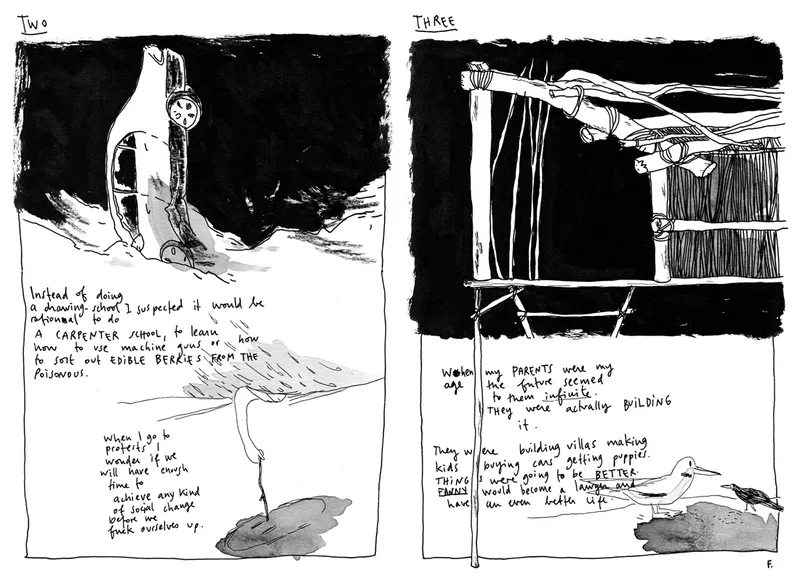 TWO
Instead of doing
a drawing-school I suspected it would be
rational to do
A CARPENTER SCHOOL, to learn
how to use machine guns or how
to sort out EDIBLE BERRIES FROM THE
POISONOUS.
When I go to
protests I
wonder if we
will have enough
time to
achieve any kind
of social change
before we
fuck ourselves up.
THREE
When my PARENTS were my
age the future seemed
to them infinite.
THEY were actually BUILDING
it.
They were building villas making
kids buying cars getting puppies.
THINGS were going to be BETTER.
FANNY would become a lawyer and
have an even better life.
F.